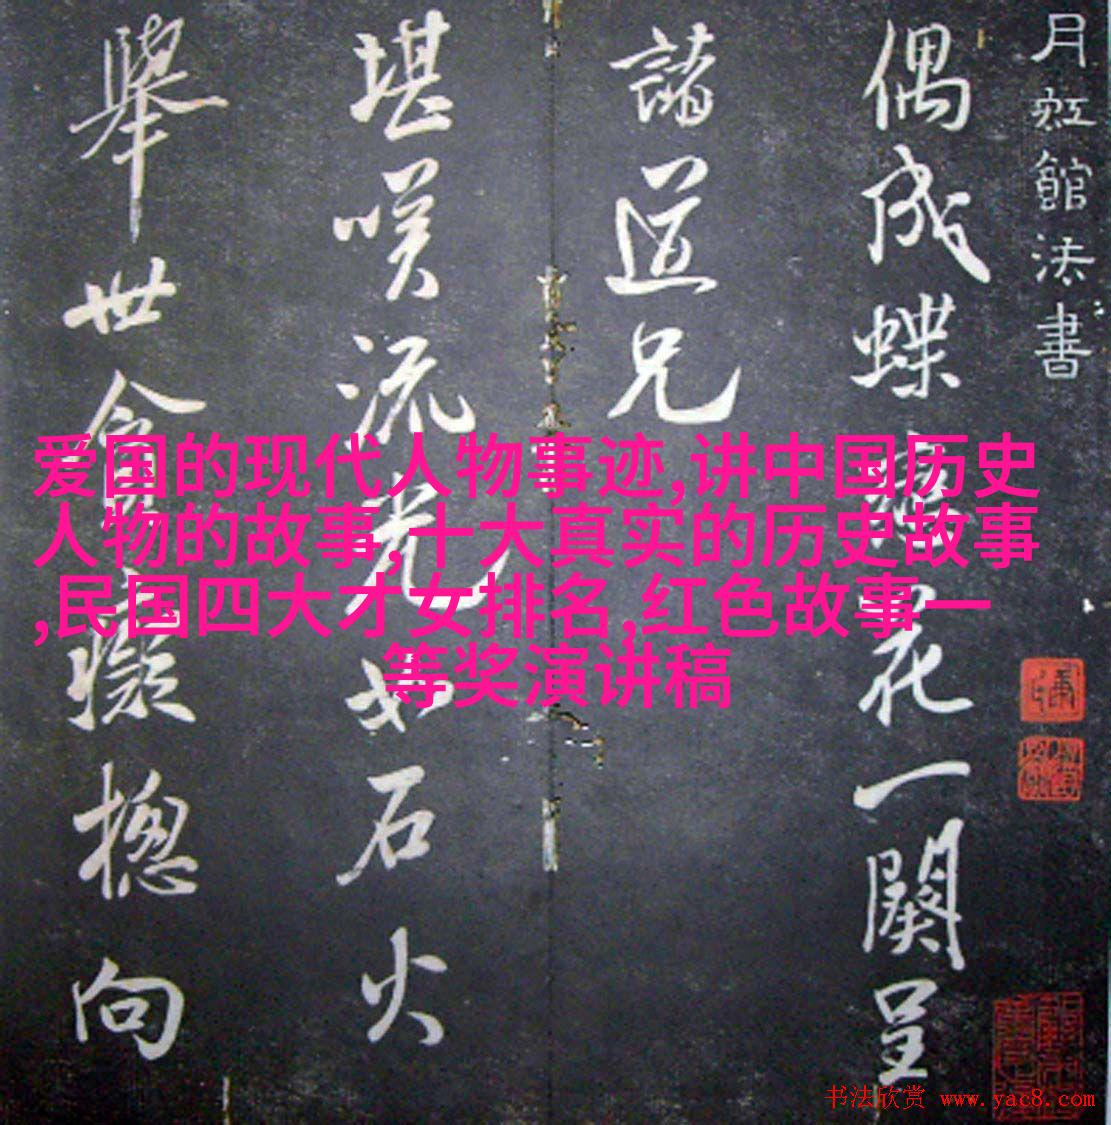 月虹館法書
偶成蝶戀花一闋呈
諸道兄
堪咲流光如石火
舉世貪癡摠向
爱国的现代人物事迹,讲中国历史
人物的故事,十大真实的历史故事
,民国四大才女排名,红色故事一
等奖演讲稿
书法欣赏 www.yac8.com